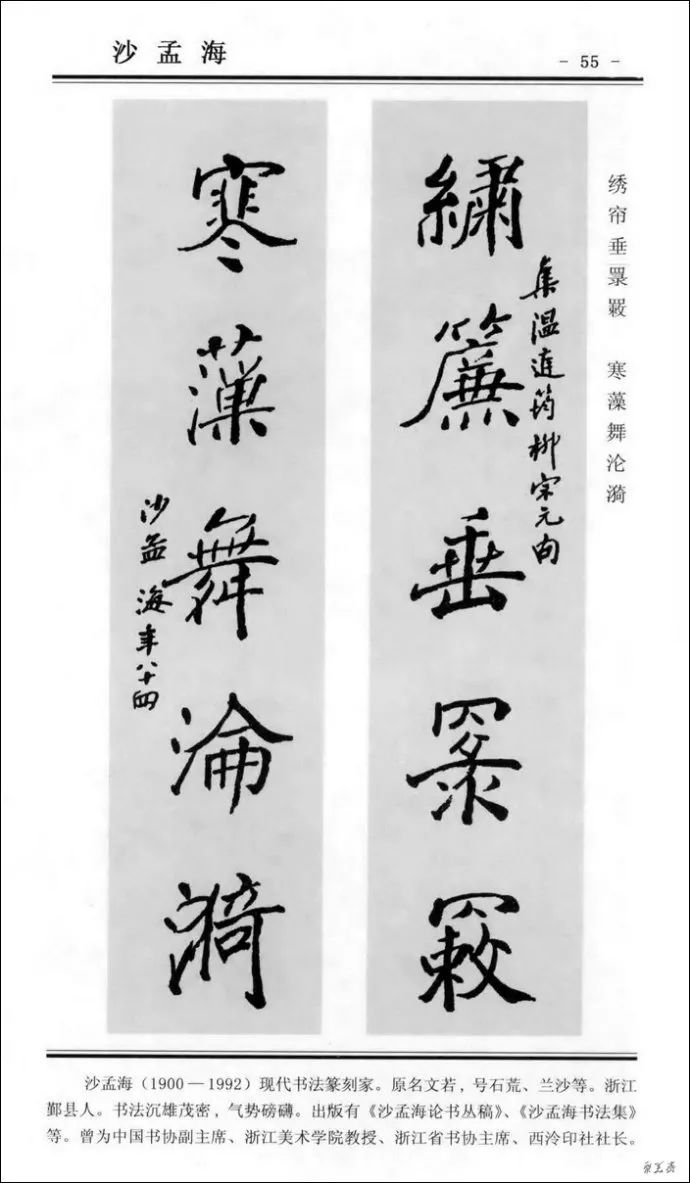 沙孟海
- 55 -
绣帘垂 寒藻舞沦漪
繡簾垂
集温庭筠柳宗元句
寒藻舞淪漪
沙孟海年八十四
沙孟海（1900—1992）现代书法篆刻家。原名文若，号石荒、兰沙等。浙江
鄞县人。书法沉雄茂密，气势磅礴。出版有《沙孟海论书丛稿》、《沙孟海书法集》
等。曾为中国书协副主席、浙江美术学院教授、浙江省书协主席、西泠印社社长。